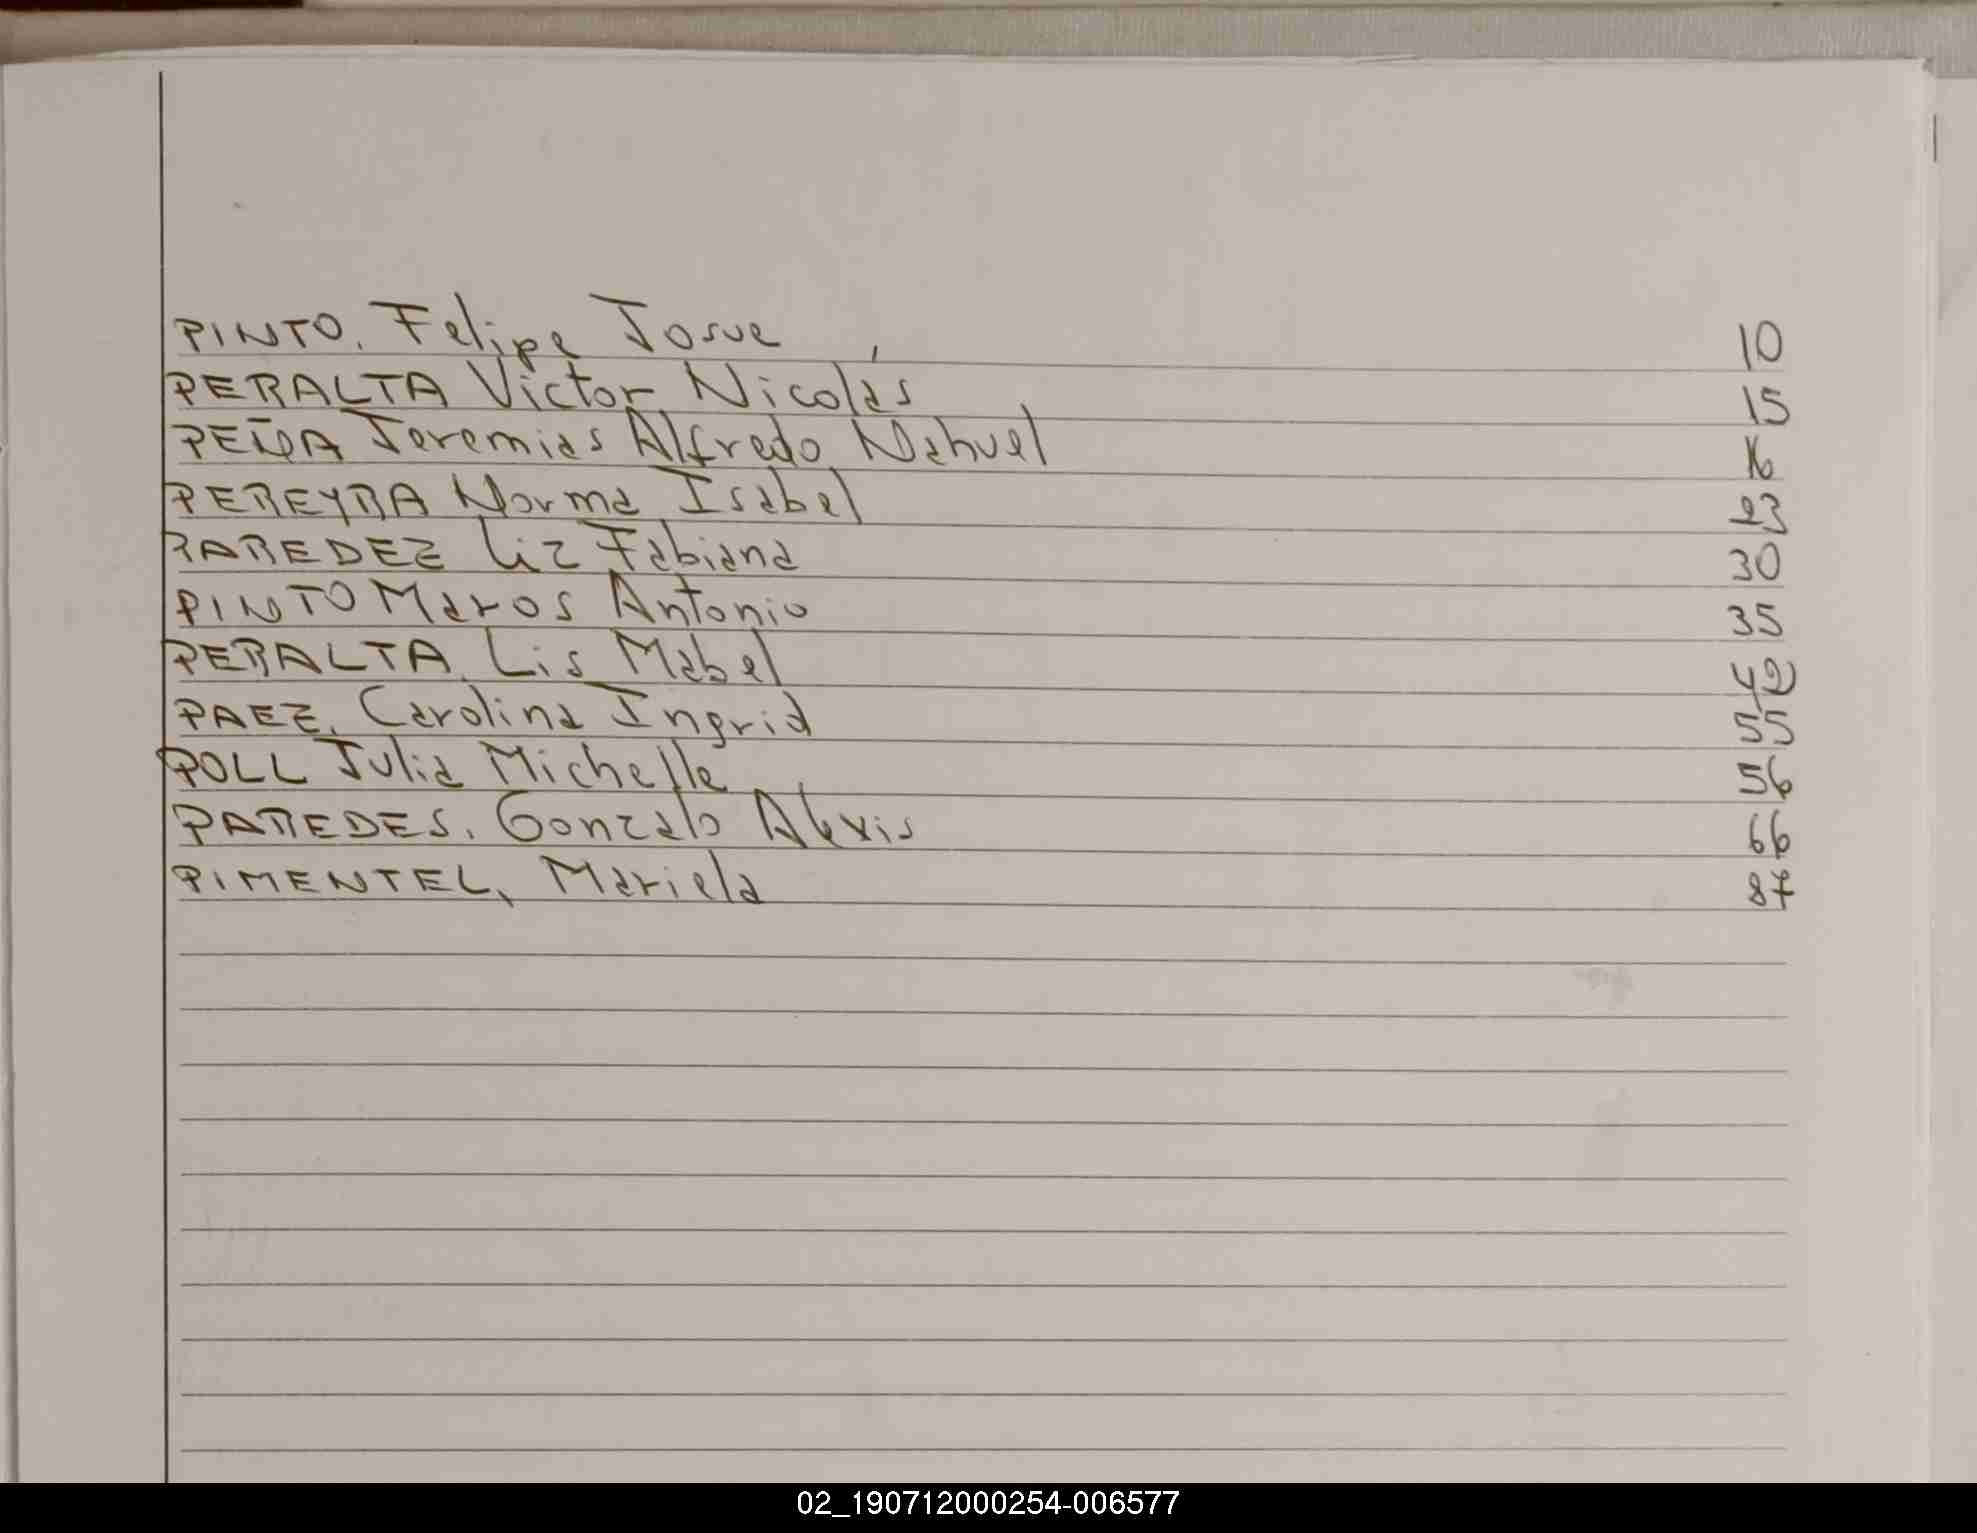 PINTO, Felipe Josue 10
PERALTA Victor Nicolás 15
PEÑA Jeremias Alfredo Nahuel 16
PEREYRA Norma Isabel 23
PAREDEZ Liz Fabiana 30
PINTO Maros Antonio 35
PERALTA, Lis Mabel 42
PAEZ, Carolina Ingrid 55
POLL Julia Michelle 56
PAREDES, Gonzalo Alexis 66
PIMENTEL, Mariela 87
02_190712000254-006577